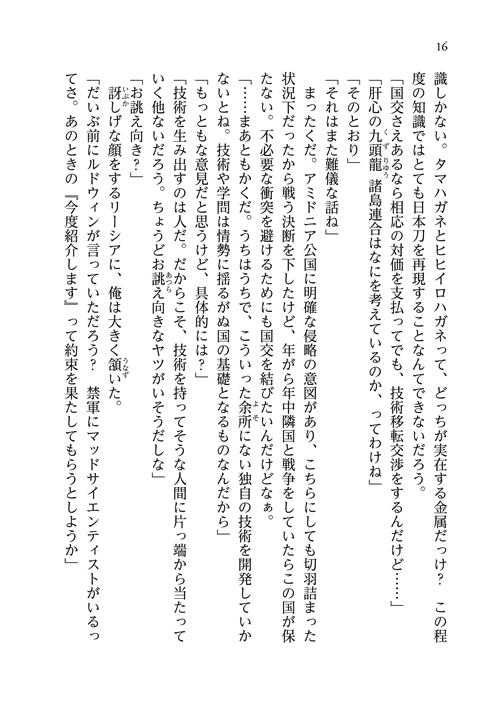 16
識しかない。タマハガネとヒヒイロハガネって、どっちが実在する金属だっけ？　この程
度の知識ではとても日本刀を再現することなんてできないだろう。
「国交さえあるなら相応の対価を支払ってでも、技術移転交渉をするんだけど……」
「肝心の九頭龍諸島連合はなにを考えているのか、ってわけね」
「そのとおり」
「それはまた難儀な話ね」
　まったくだ。アミドニア公国に明確な侵略の意図があり、こちらにしても切羽詰まった
状況下だったから戦う決断を下したけど、年がら年中隣国と戦争をしていたらこの国が保
たない。不必要な衝突を避けるためにも国交を結びたいんだけどなぁ。
「……まあともかくだ。うちはうちで、こういった余所にない独自の技術を開発していか
ないとね。技術や学問は情勢に揺るがぬ国の基礎となるものなんだから」
「もっともな意見だと思うけど、具体的には？」
「技術を生み出すのは人だ。だからこそ、技術を持ってそうな人間に片っ端から当たって
いく他ないだろう。ちょうどお誂え向きなヤツがいそうだしな」
「お誂え向き？」
　訝しげな顔をするリーシアに、俺は大きく頷いた。
「だいぶ前にルドウィンが言っていただろう？　禁軍にマッドサイエンティストがいるっ
てさ。あのときの『今度紹介します』って約束を果たしてもらうとしようか」